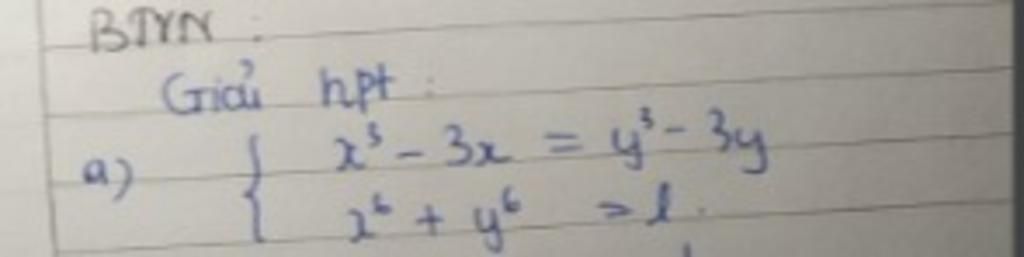 BTVN :
Giải hpt :
a) { x³ - 3x = y³ - 3y
x⁶ + y⁶ = 1.